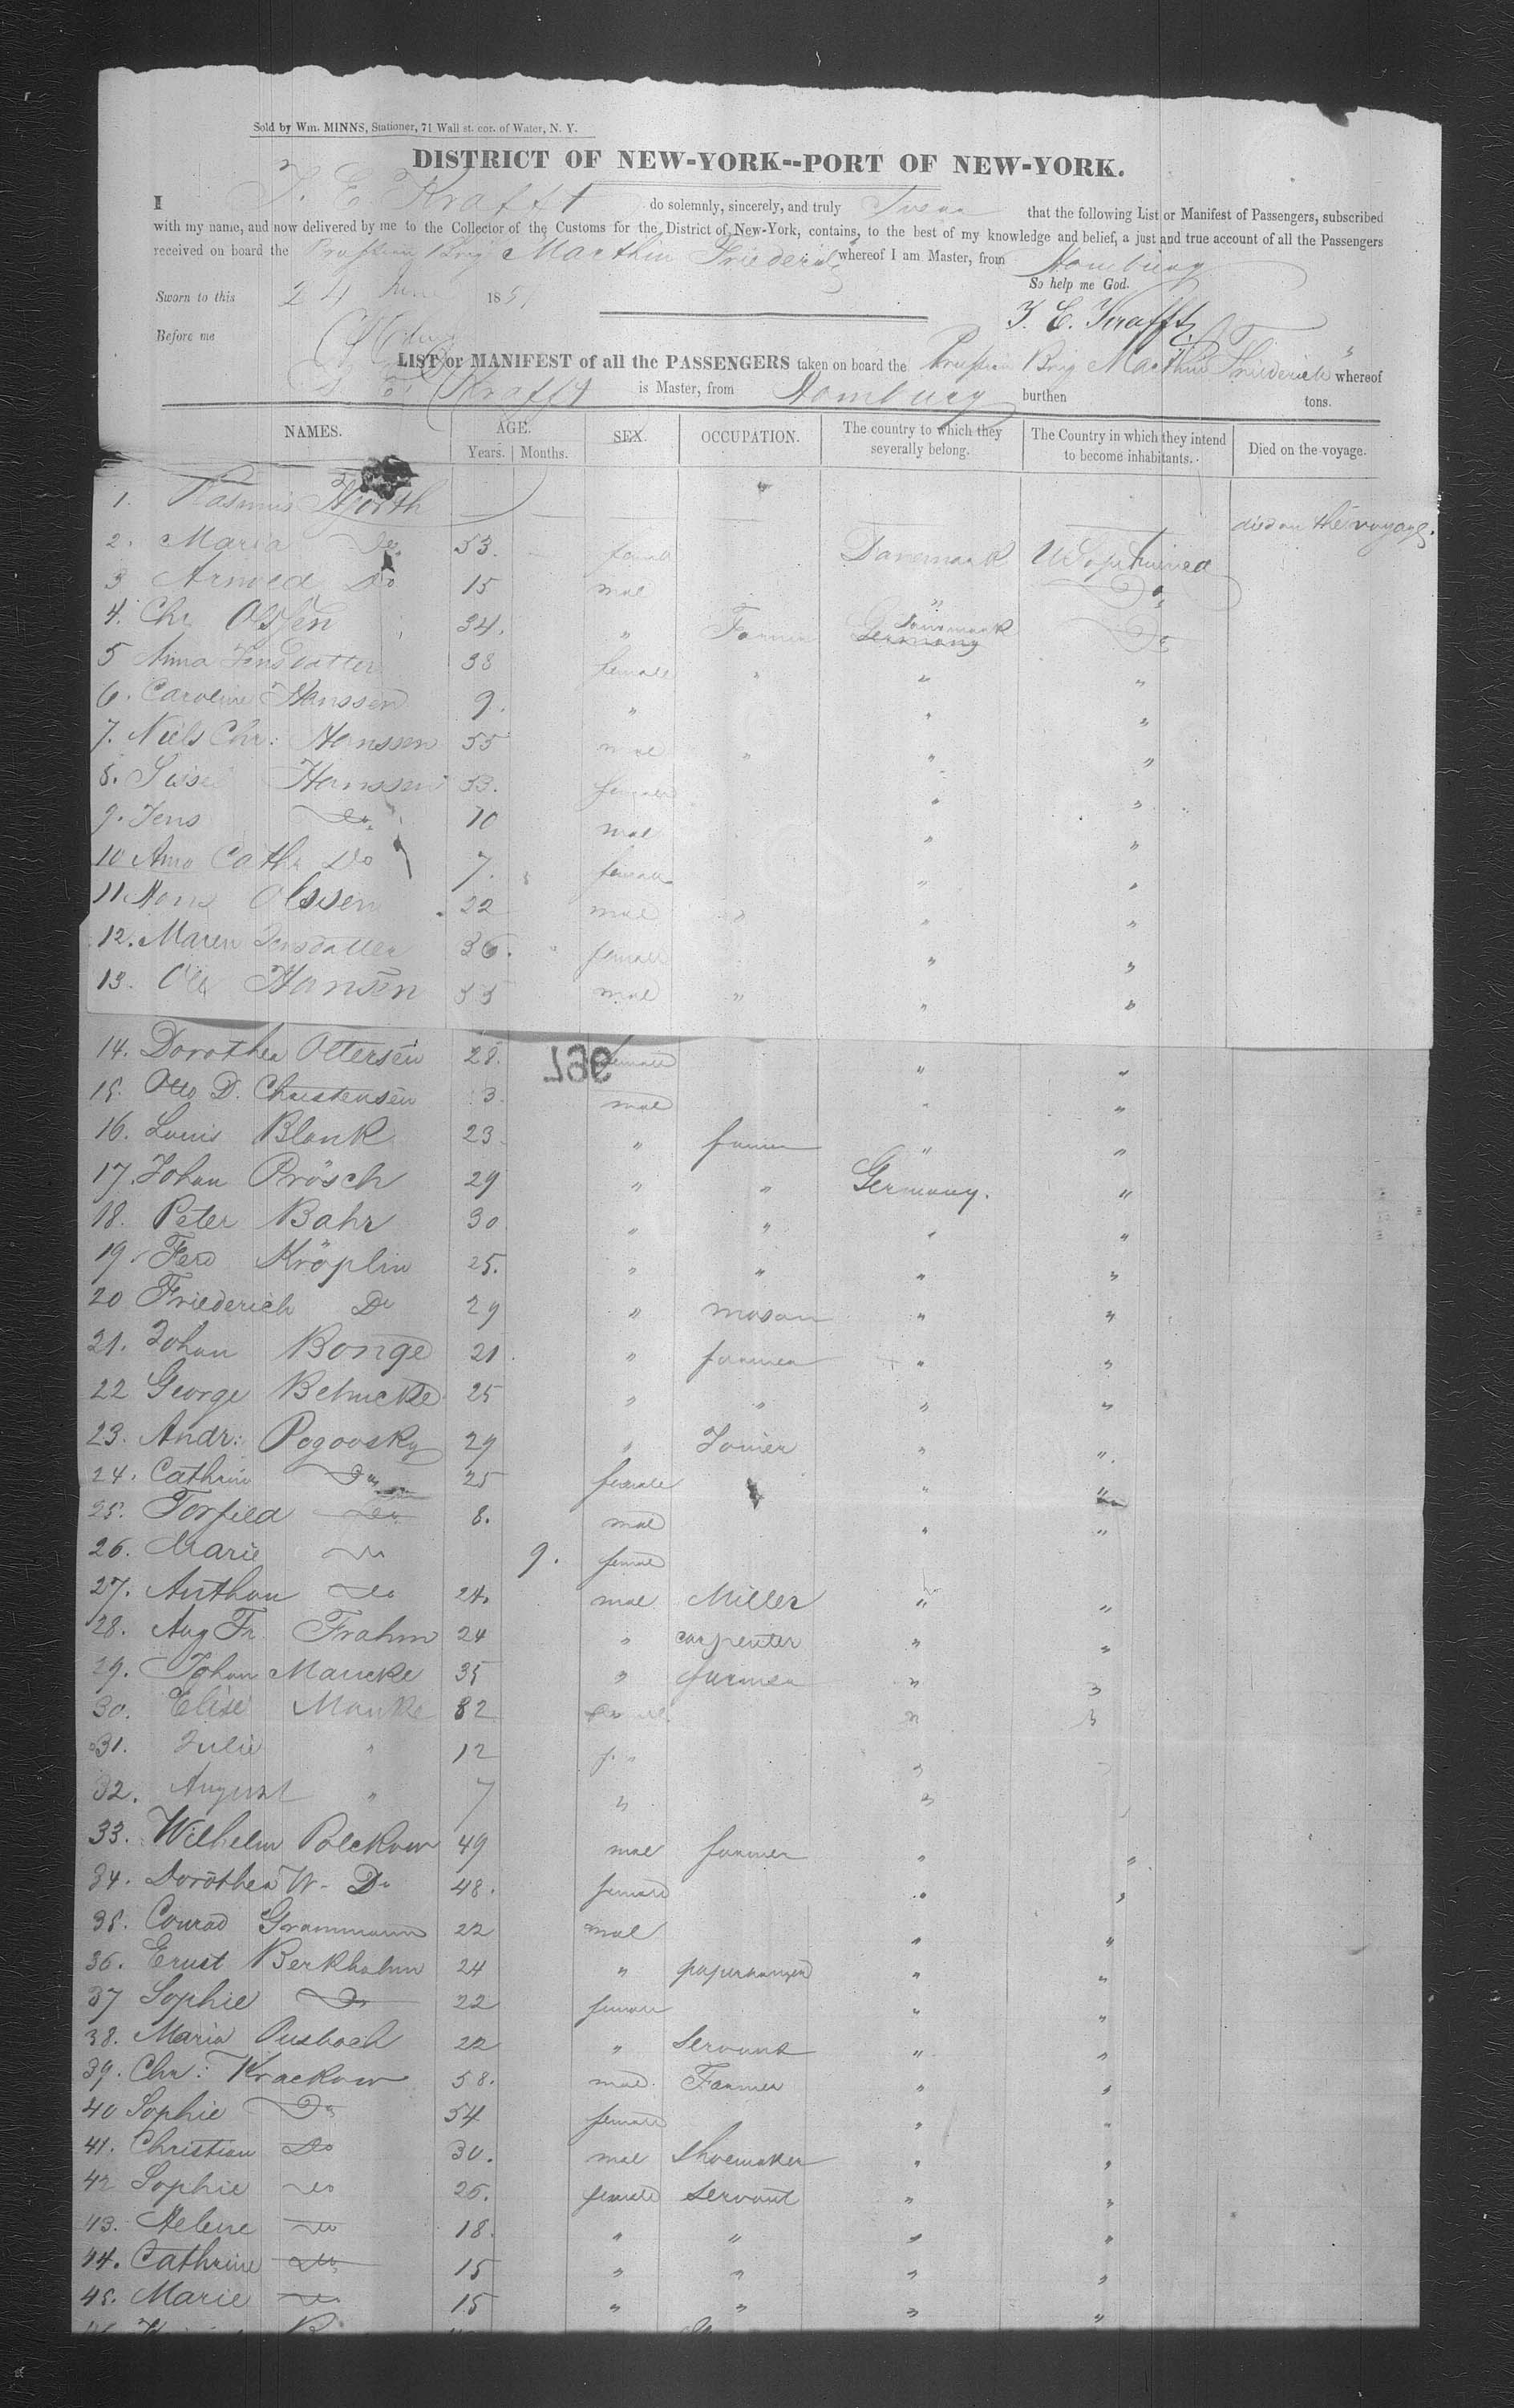 Sold by Wm. MINNS, Stationer, 71 Wall st. cor. of Water, N. Y.
DISTRICT OF NEW-YORK--PORT OF NEW-YORK.
I Krafft do solemnly, sincerely, and truly Swear that the following List or Manifest of Passengers, subscribed
with my name, and now delivered by me to the Collector of the Customs for the District of New-York, contains, to the best of my knowledge and belief, a just and true account of all the Passengers
received on board the Prussian Brig Marthin Friederich whereof I am Master, from Hamburg
So help me God.
Sworn to this 24 June 1851
Before me
LIST or MANIFEST of all the PASSENGERS taken on board the Prussian Brig Marthin Friederich whereof
Krafft is Master, from Hamburg burthen tons.
NAMES. AGE. SEX. OCCUPATION. The country to which they severally belong. The Country in which they intend to become inhabitants. Died on the voyage.
Years. Months.
1. Rasmus Hjorth died on the voyage.
2. Maria Do 53. female Danemark
3 Arnold Do 15 mal " Do
4. Chr. Olssen 34. " Farmer Danemark Do
5 Anna 38 female " " "
6. Caroline Hanssen 9. " " "
7. Niels Chr: Hanssen 55 mal " " "
8. Hanssen 53. female " "
9. Jens Do 10 mal " "
10 Ana Cath. Do 7. female " "
11 Olssen 22 mal " " "
12. Maren 36. female " "
13. Ole Hansen 55 mal " " "
14. Dorothea Ottersen 28. female " "
967
15. Otto D. Christensen 3 mal " "
16. Louis Blank 23 " farmer " "
17. Johan Prösch 29 " " Germany. "
18. Peter Bahr 30 " " " "
19. Ferd Kröplin 25. " " " "
20 Friederich Do 29 " mason " "
21. Johan Bonge 21 " farmer " "
22 George 25 " " " "
23. Andr: Pogovsky 29 " Joiner " "
24. Cathrin Do 25 female " "
25. Do 8. mal " "
26. Marie Do 9. female
27. Anthon Do 24. mal Miller " "
28. Aug Fr. Frahm 24 " carpenter " "
29. Johan Mancke 35 " farmer " "
30. Elise Manke 32 female " "
31. Julie " 12 f. " "
32. August " 7 " "
33. Wilhelm Polckow 49 mal farmer " "
34. Dorothea W. Do 48. female " "
35. Conrad Grammann 22 mal " "
36. Ernst Berkhahn 24 " " "
37 Sophie Do 22 female " "
38. Maria 22 " Servant " "
39. Chr: Krackow 58. mal Farmer " "
40 Sophie Do 54 female " "
41. Christian Do 30. mal Shoemaker " "
42 Sophie Do 26. female Servant " "
43. Helene Do 18. " " " "
44. Cathrine Do 15 " " " "
45. Marie Do 15 " " " "